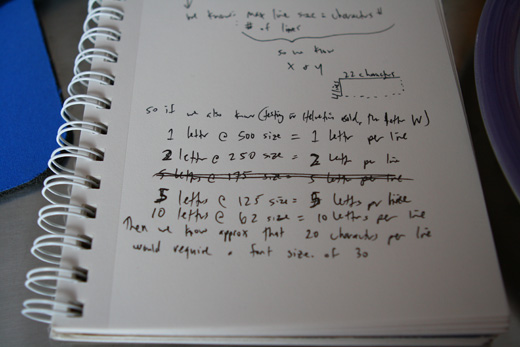 we know: max line size = characters #
# of lines
so we know
X & Y
22 characters
4 lines
so if we also know (testing in Helvetica bold, the letter W)
1 letter @ 500 size = 1 letter per line
2 letter @ 250 size = 2 letter per line
letters @ 175 size = letter per line
5 letters @ 125 size = 5 letters per line
10 letters @ 62 size = 10 letters per line
Then we know approx that 20 characters per line
would require a font size of 30